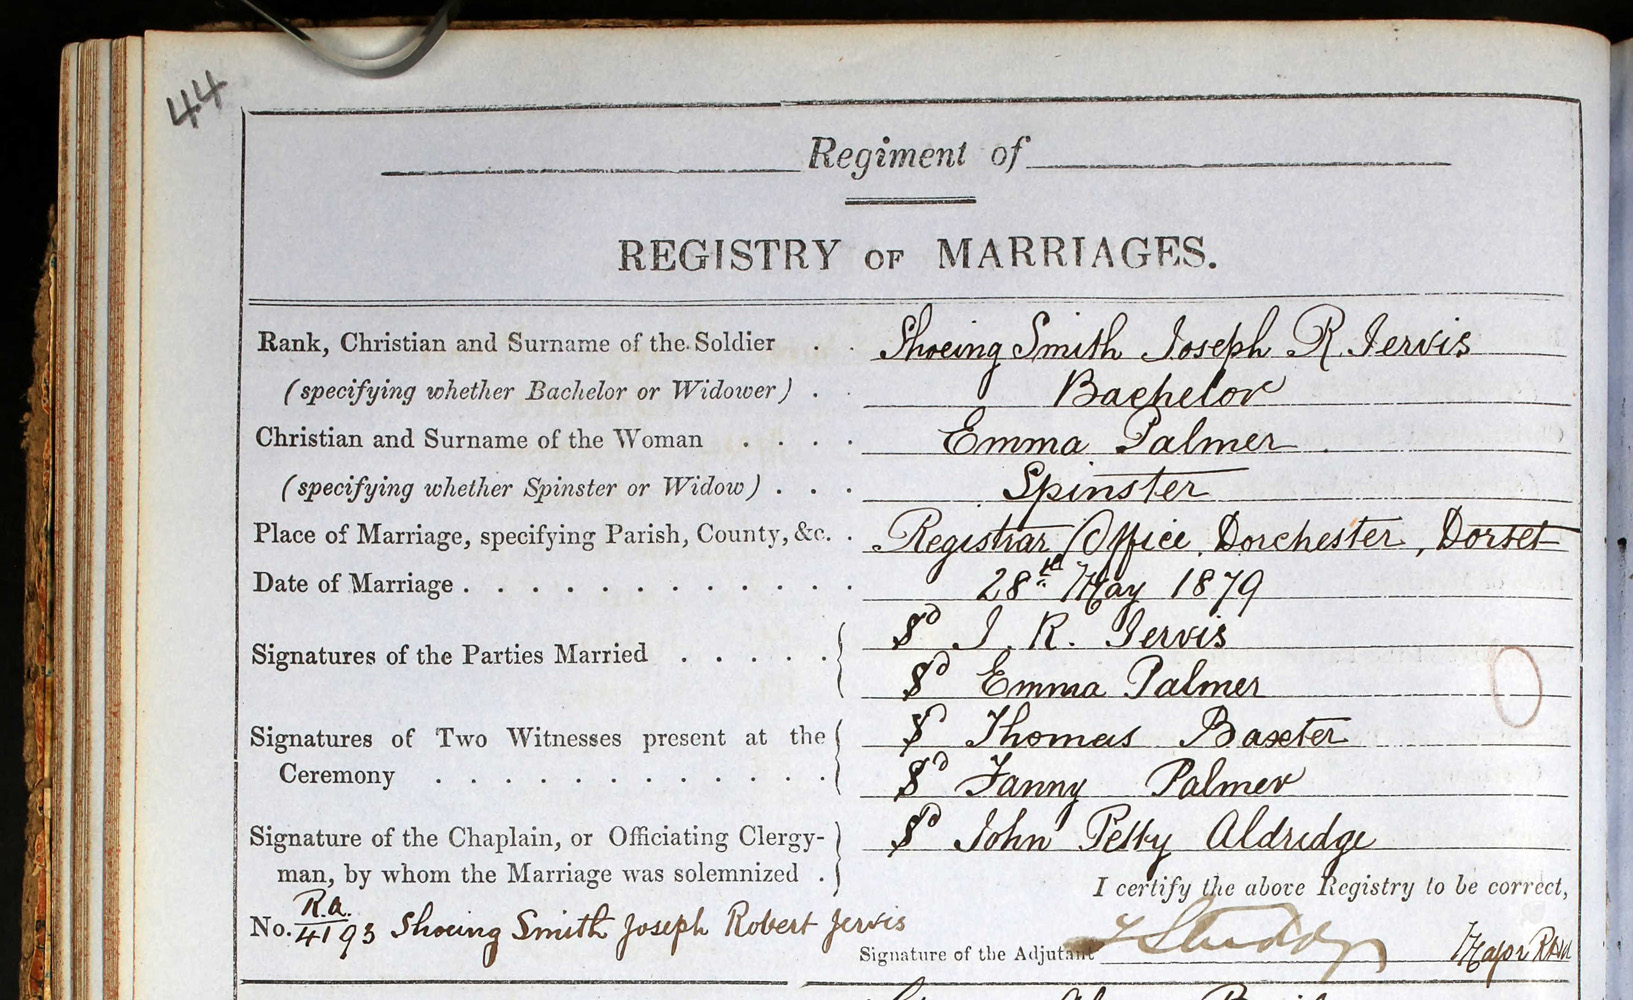 44
Regiment of
REGISTRY OF MARRIAGES.
Rank, Christian and Surname of the Soldier . . Shoeing Smith Joseph R. Jervis
(specifying whether Bachelor or Widower) . . Bachelor
Christian and Surname of the Woman . . . . Emma Palmer
(specifying whether Spinster or Widow) . . . Spinster
Place of Marriage, specifying Parish, County, &c. . Registrar Office, Dorchester, Dorset
Date of Marriage . . . . . . . . . . . . 28th May 1879
Sd J. R. Jervis
Signatures of the Parties Married . . . . .
Sd Emma Palmer
Signatures of Two Witnesses present at the Sd Thomas Baxter
Ceremony . . . . . . . . . . . . Sd Fanny Palmer
Signature of the Chaplain, or Officiating Clergy- Sd John Aldridge
man, by whom the Marriage was solemnized .
I certify the above Registry to be correct,
No. R.A. 4193 Shoeing Smith Joseph Robert Jervis
Signature of the Adjutant Studdy Major